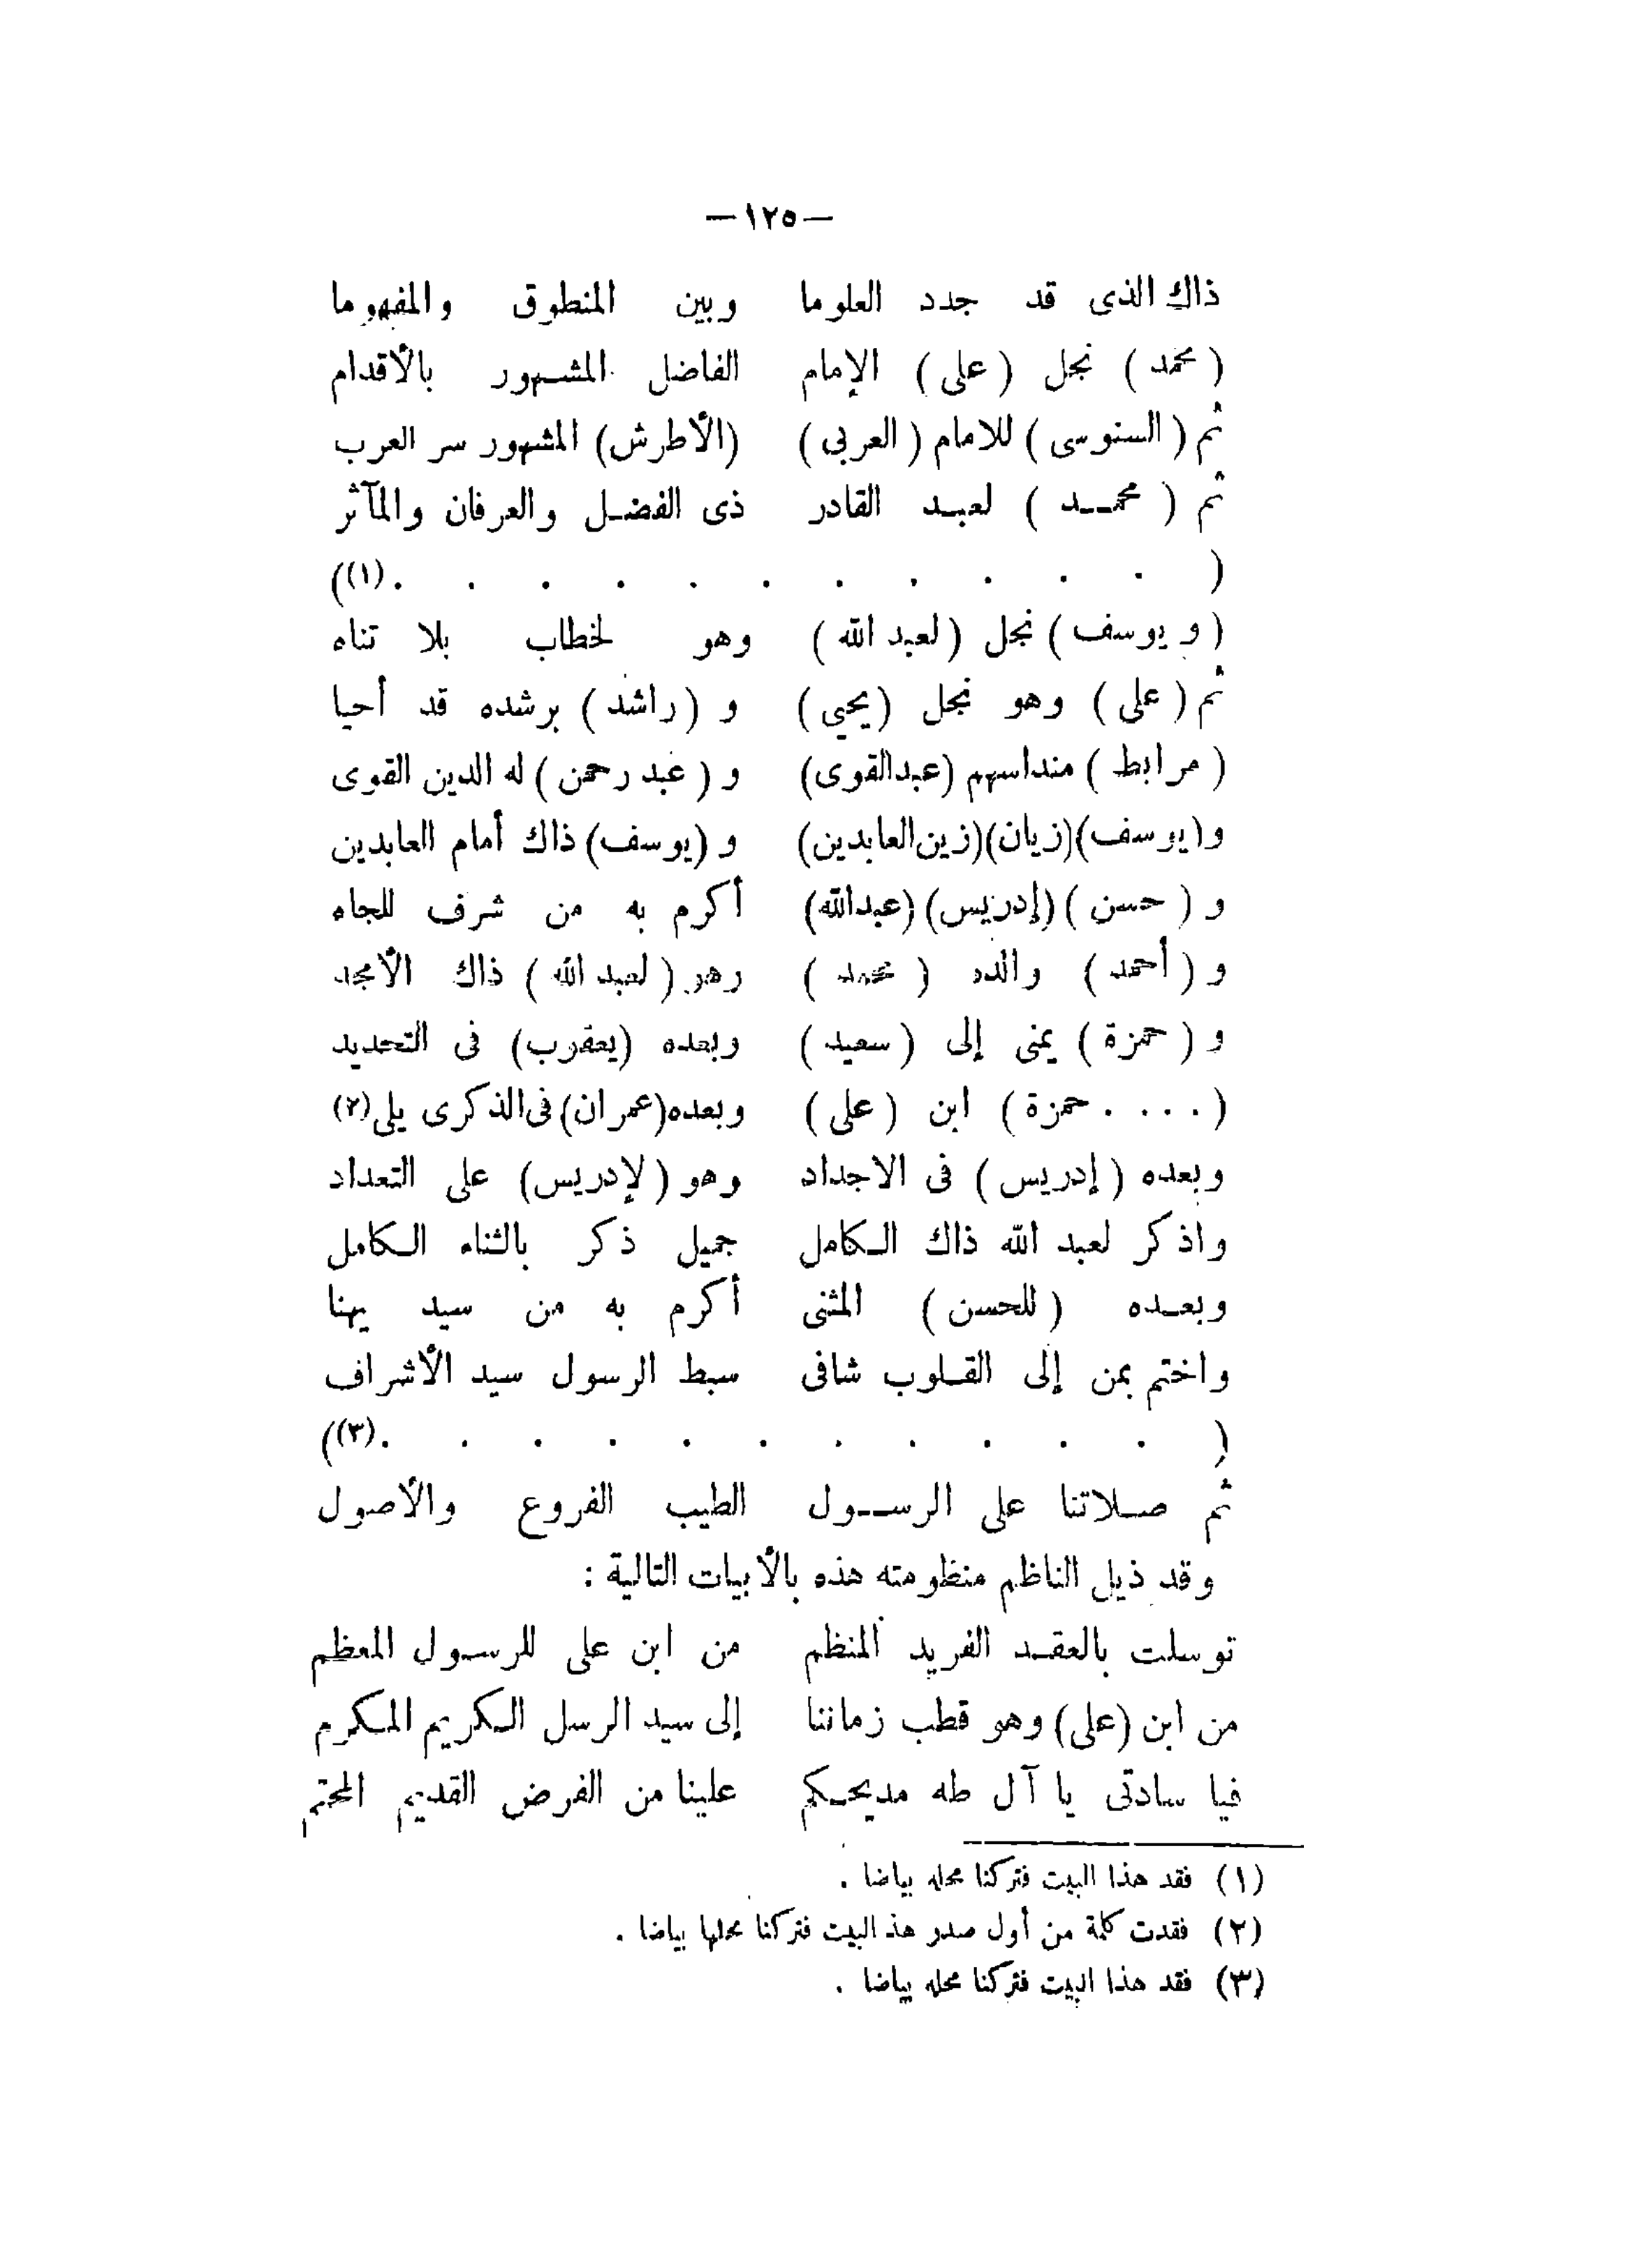 — ١٢٥ —
ذاك الذى قد جدد العلوما وبين المنطوق والمفهوما
( محمد ) نجل ( على ) الإمام الفاضل المشهور بالأقدام
ثم ( السنوسى ) للامام ( العربى ) (الأطرش) المشهور سر العرب
ثم ( محمد ) لعبد القادر ذى الفضل والعرفان والمآثر
( . . . . . . . . . . . (١))
( و يوسف ) نجل ( لعبد الله ) وهو لخطاب بلا تناه
ثم ( على ) وهو نجل (يحيى ) و ( راشد ) برشده قد أحيا
( مرابط ) منداسهم (عبدالقوى) و ( عبد رحمن ) له الدين القوى
و(يوسف)(زيان)(زين العابدين) و (يوسف) ذاك أمام العابدين
و ( حسن ) (إدريس) (عبدالله) أكرم به من شرف للجاه
و ( أحمد ) والده ( محمد ) وهو ( لعبد الله ) ذاك الأمجد
و ( حمزة ) يمنى إلى ( سعيد ) وبعده (يعقوب) فى التحديد
( . . . . حمزة ) ابن ( على ) وبعده (عمران) فى الذكرى يلى (٢)
وبعده ( إدريس ) فى الاجداد وهو ( لإدريس) على التعداد
واذكر لعبد الله ذاك الكامل جميل ذكر بالثناء الكامل
وبعده ( للحسن ) المثنى أكرم به من سيد يهنا
واختم بمن إلى القلوب شافى سبط الرسول سيد الأشراف
( . . . . . . . . . . . (٣))
ثم صلاتنا على الرسول الطيب الفروع والأصول
وقد ذيل الناظم منظومته هذه بالأبيات التالية :
توسلت بالعقد الفريد المنظم من ابن على للرسول المعظم
من ابن (على) وهو قطب زماننا إلى سيد الرسل الكريم المكرم
فيا سادتى يا آل طه مديحكم علينا من الفرض القديم المحتم
(١) فقد هذا البيت فتركنا محله بياضا .
(٢) فقدت كلمة من أول صدر هذ البيت فتركنا محلها بياضا .
(٣) فقد هذا البيت فتركنا محله بياضا .